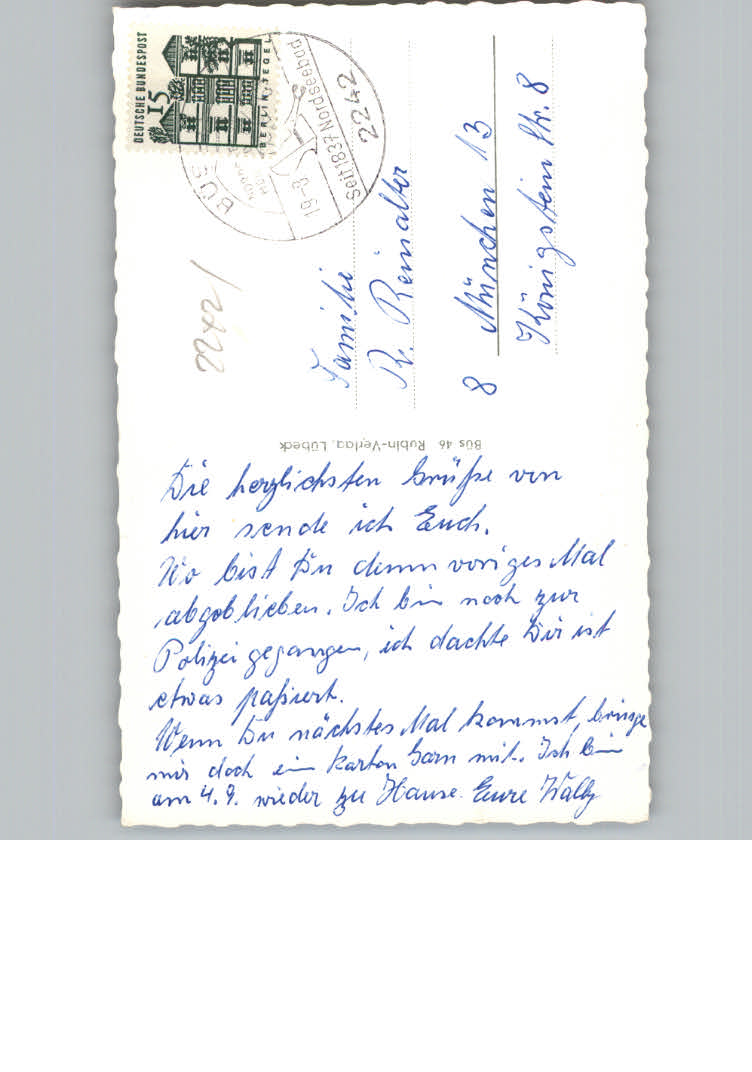 DEUTSCHE BUNDESPOST
15
BERLIN-TEGEL
BÜS
19.-8
Seit 1837 Nordseebad
2242
2242/
Familie
R. Reinalter
8 München 13
Königstein Str. 8
Büs 46 Rubin-Verlag, Lübeck
Die herzlichsten Grüße von
hier sende ich Euch.
Wo bist Du denn voriges Mal
abgeblieben. Ich bin noch zur
Polizei gegangen, ich dachte Dir ist
etwas paßiert.
Wenn Du nächstes Mal kommst, bringe
mir doch ein Karton Garn mit. Ich bin
am 4.9. wieder zu Hause. Eure Wally